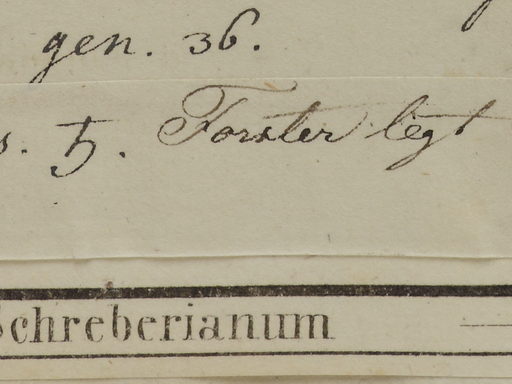 gen. 36.
s. 5. Forster legt
Schreberianum